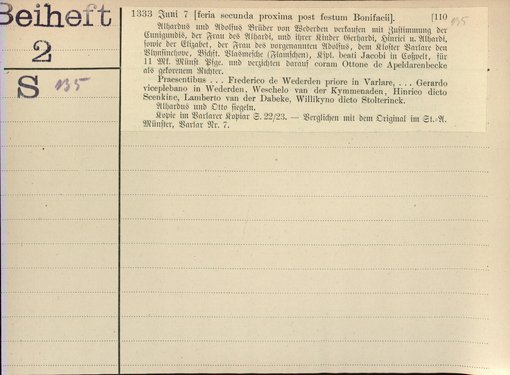 Beiheft
2
S 135
1333 Juni 7 [feria secunda proxima post festum Bonifacii]. [110
135
Alhardus und Adolfus Brüder von Wederden verkaufen mit Zustimmung der
Cunigundis, der Frau des Alhardi, und ihrer Kinder Gerhardi, Hinrici u. Alhardi,
sowie der Elizabet, der Frau des vorgenannten Adolfus, dem Kloster Varlare den
Bschft. (Flamschen), Kspl. beati Jacobi in Cosvelt, für
11 Mk. Münst Pfge. und verzichten darauf coram Ottone de Apeldarenbecke
als gekorenem Richter.
Praesentibus . . . Frederico de Wederden priore in Varlare, . . . Gerardo
viceplebano in Wederden, Weschelo van der Kymmenaden, Hinrico dicto
Scenkine, Lamberto van der Dabeke, Willikyno dicto Stolterinck.
Alhardus und Otto siegeln.
Kopie im Varlarer Kopiar S. 22/23. — Verglichen mit dem Original im St.-A.
Münster, Varlar Nr. 7.